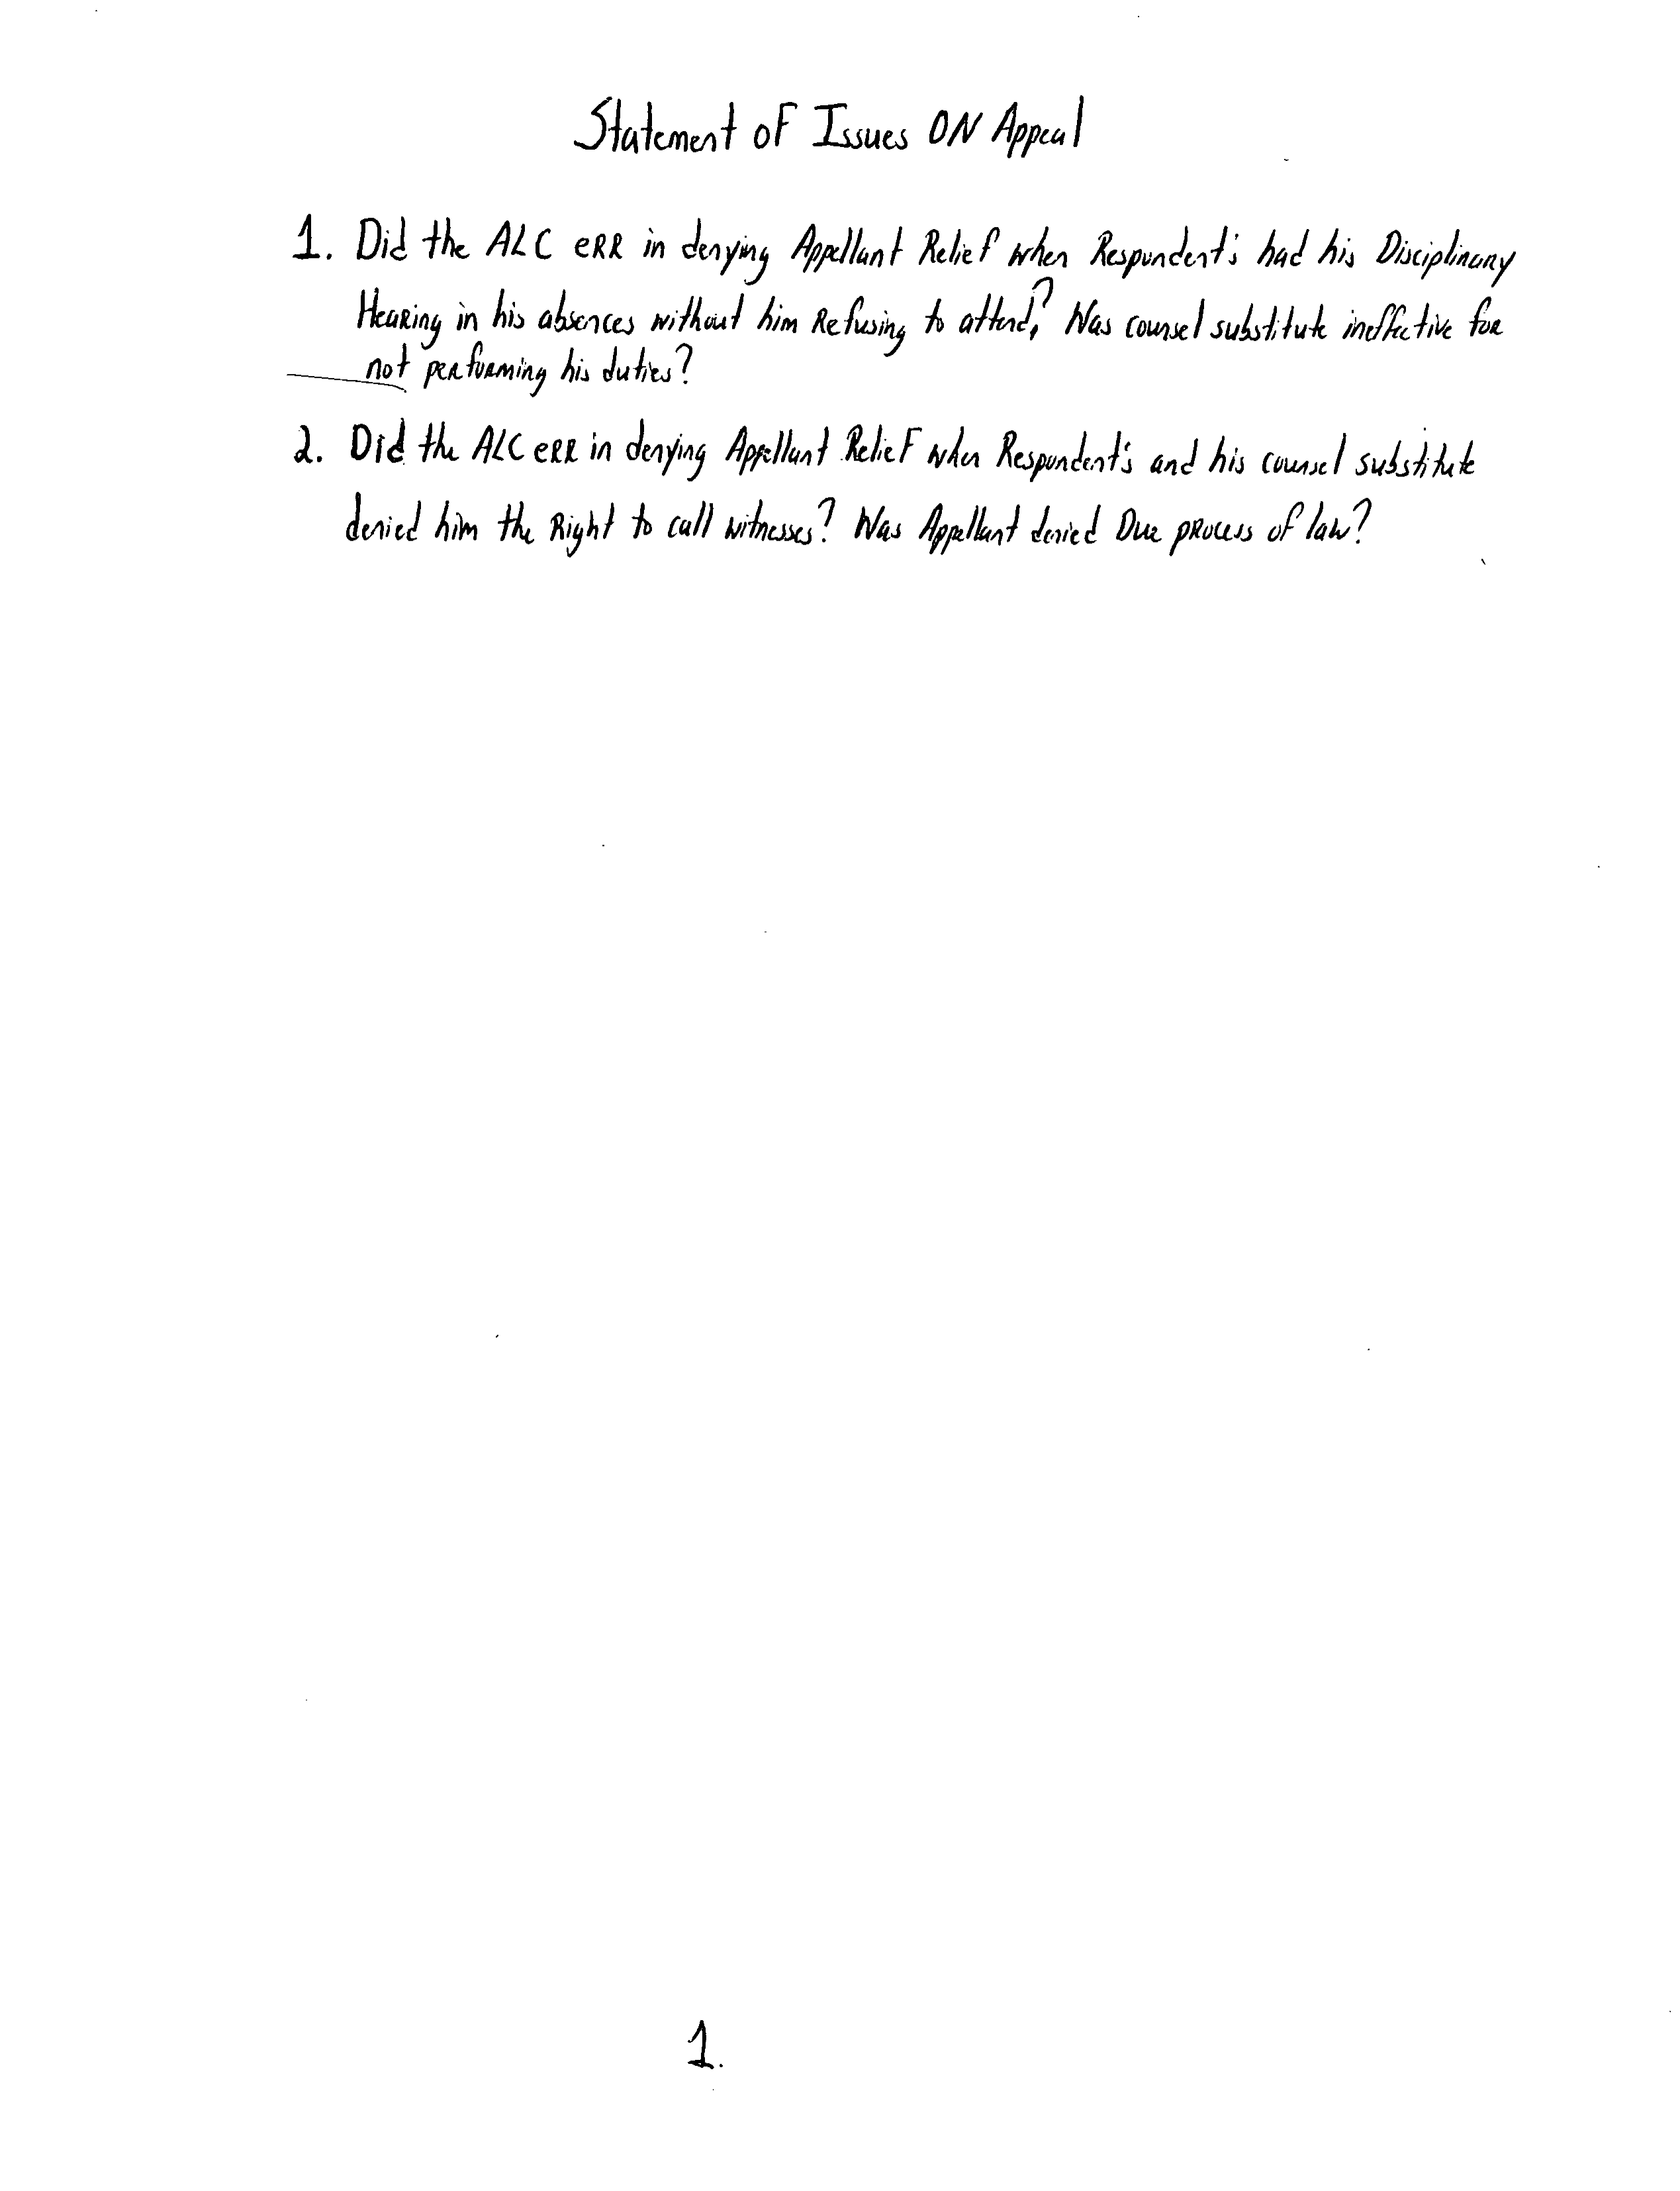 Statement of Issues ON Appeal
1. Did the ALC eRR in denying Appellant Relief when Respondent's had his Disciplinary
Hearing in his absences without him Refusing to attend? Was counsel substitute ineffective for
not performing his duties?
2. Did the ALC eRR in denying Appellant Relief when Respondent's and his counsel substitute
denied him the Right to call witnesses? Was Appellant denied Due process of law?
1.